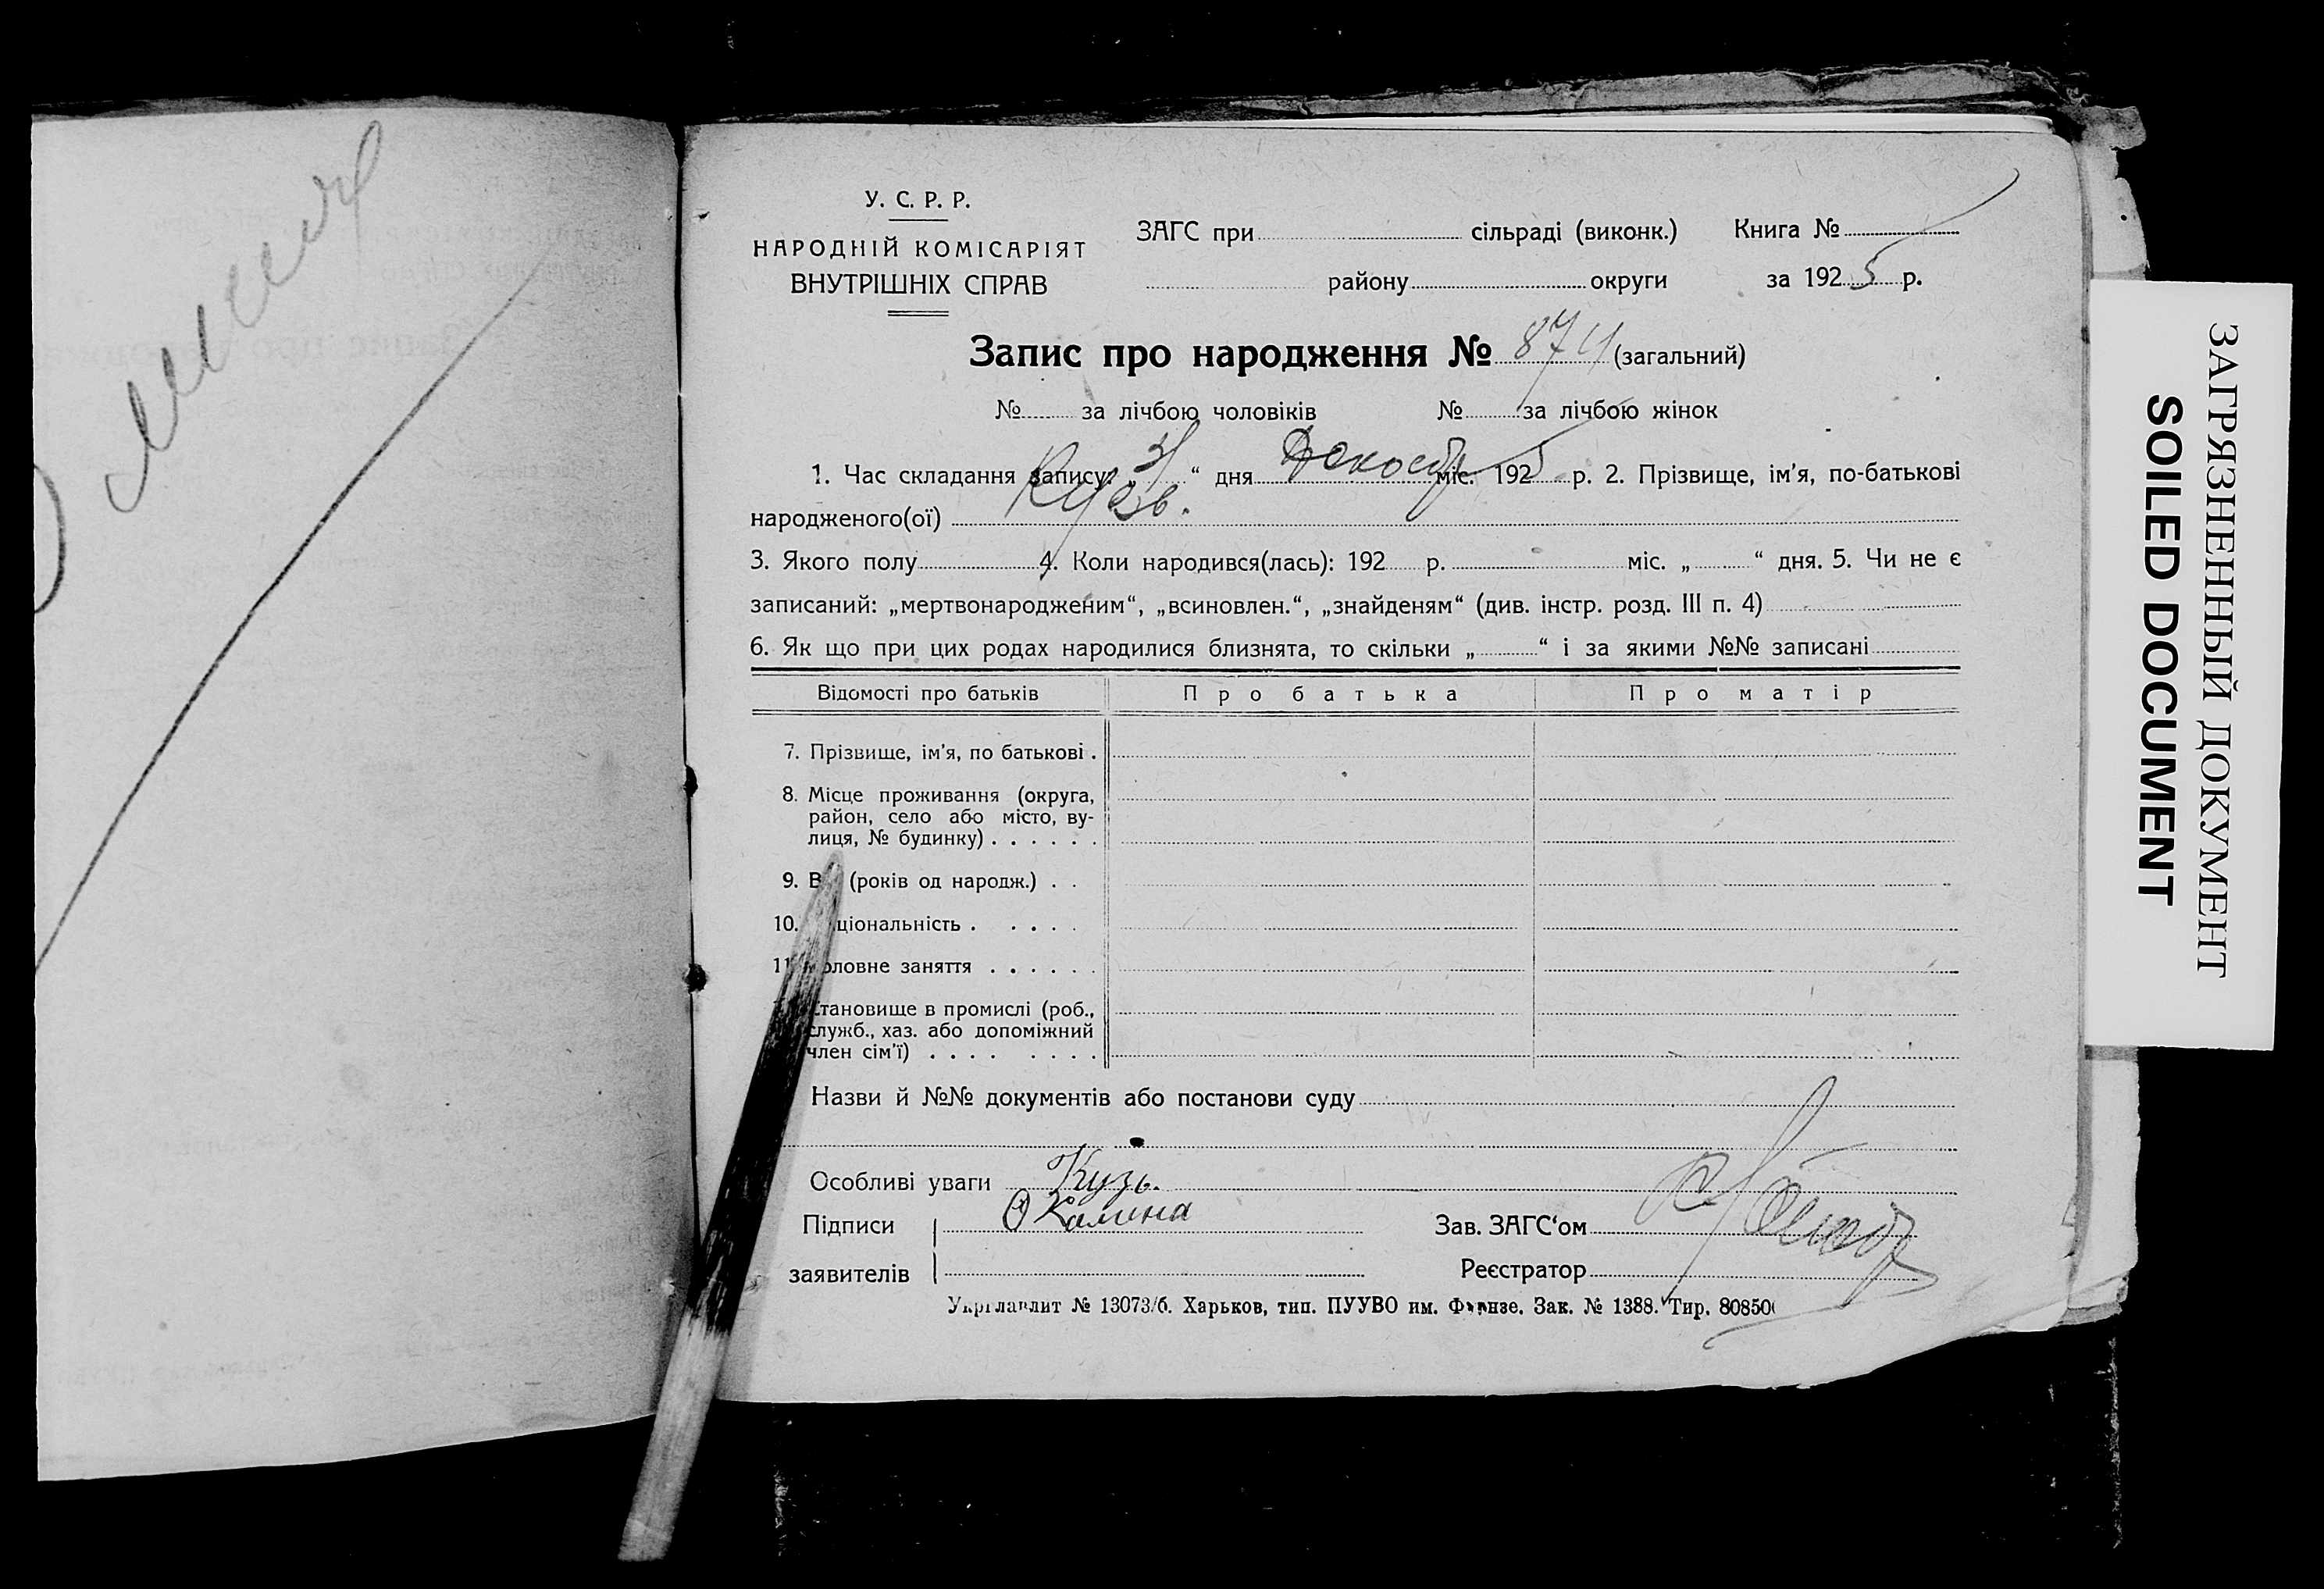 У. С. Р. Р.
НАРОДНІЙ КОМІСАРІЯТ
ВНУТРІШНІХ СПРАВ
ЗАГС при сільраді (виконк.) Книга №
району округи за 1925 р.
Запис про народження № 874 (загальний)
№ за лічбою чоловіків № за лічбою жінок
1. Час складання запису: „ “ дня міс. 1925 р. 2. Прізвище, ім'я, по-батькові
народженого(ої) Кузь.
3. Якого полу 4. Коли народився(лась): 192 р. міс. „ “ дня. 5. Чи не є
записаний: „мертвонародженим“, „всиновлен.“, „знайденям“ (див. інстр. розд. III п. 4)
6. Як що при цих родах народилися близнята, то скільки „ “ і за якими №№ записані
Відомості про батьків Про батька Про матір
7. Прізвище, ім'я, по батькові .
8. Місце проживання (округа,
район, село або місто, ву-
лиця, № будинку) . . . . . .
9. В (років од народж.) . .
10. ціональність . . . . .
11 оловне заняття . . . . . .
тановище в промислі (роб.,
служб., хаз. або допоміжний
член сім'ї) . . . . . . . .
Назви й №№ документів або постанови суду
Особливі уваги Кузь.
Підписи О Калина Зав. ЗАГС'ом
заявителів Реєстратор
Укрглавлит № 13073/б. Харьков, тип. ПУУВО им. Фрунзе. Зак. № 1388. Тир. 80850
ЗАГРЯЗНЕННЫЙ ДОКУМЕНТ
SOILED DOCUMENT